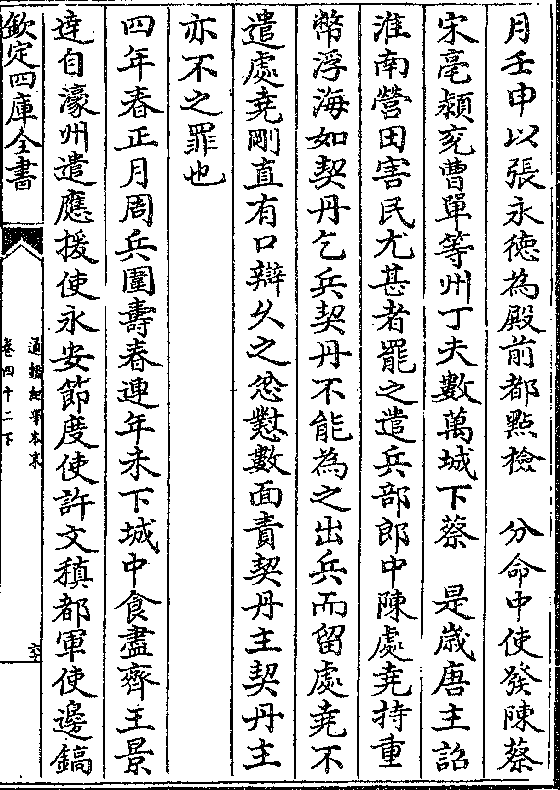 月壬申以張永德為殿前都點檢　分命中使發陳蔡
宋亳潁兖曹單等州丁夫數萬城下蔡　是歲唐主詔
淮南營田害民尤甚者罷之遣兵部郎中陳處堯持重
幣浮海如契丹乞兵契丹不能為之出兵而留處堯不
遣處堯剛直有口辯久之忿懟數面責契丹主契丹主
亦不之罪也
四年春正月周兵圍壽春連年未下城中食盡齊王景
達自濠州遣應援使永安節度使許文稹都軍使邊鎬
欽定四庫全書
通鑑紀事本末
卷四十二下